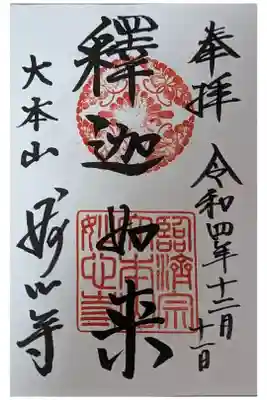 奉拝
令和四年十二月
十一日
釋迦如来
臨濟宗
大本山
妙心寺
大本山
妙心寺